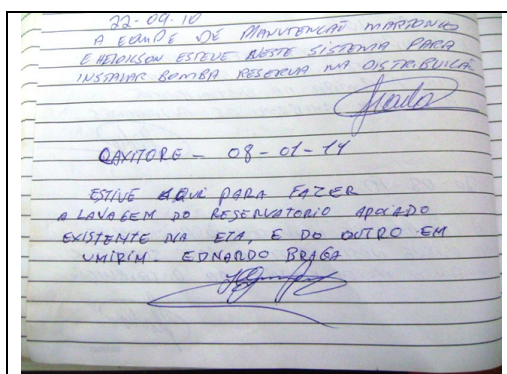 22-09-10
A EQUIPE DE MANUTENCAO MARTONIO
E HELDILSON ESTEVE NESTE SISTEMA PARA
INSTALAR BOMBA RESERVA NA DISTRIBUICA
08-01-14
ESTIVE AQUI PARA FAZER
A LAVAGEM DO RESERVATORIO APOIADO
EXISTENTE NA ETA, E DO OUTRO EM
UMIRIM. EDNARDO BRAGA